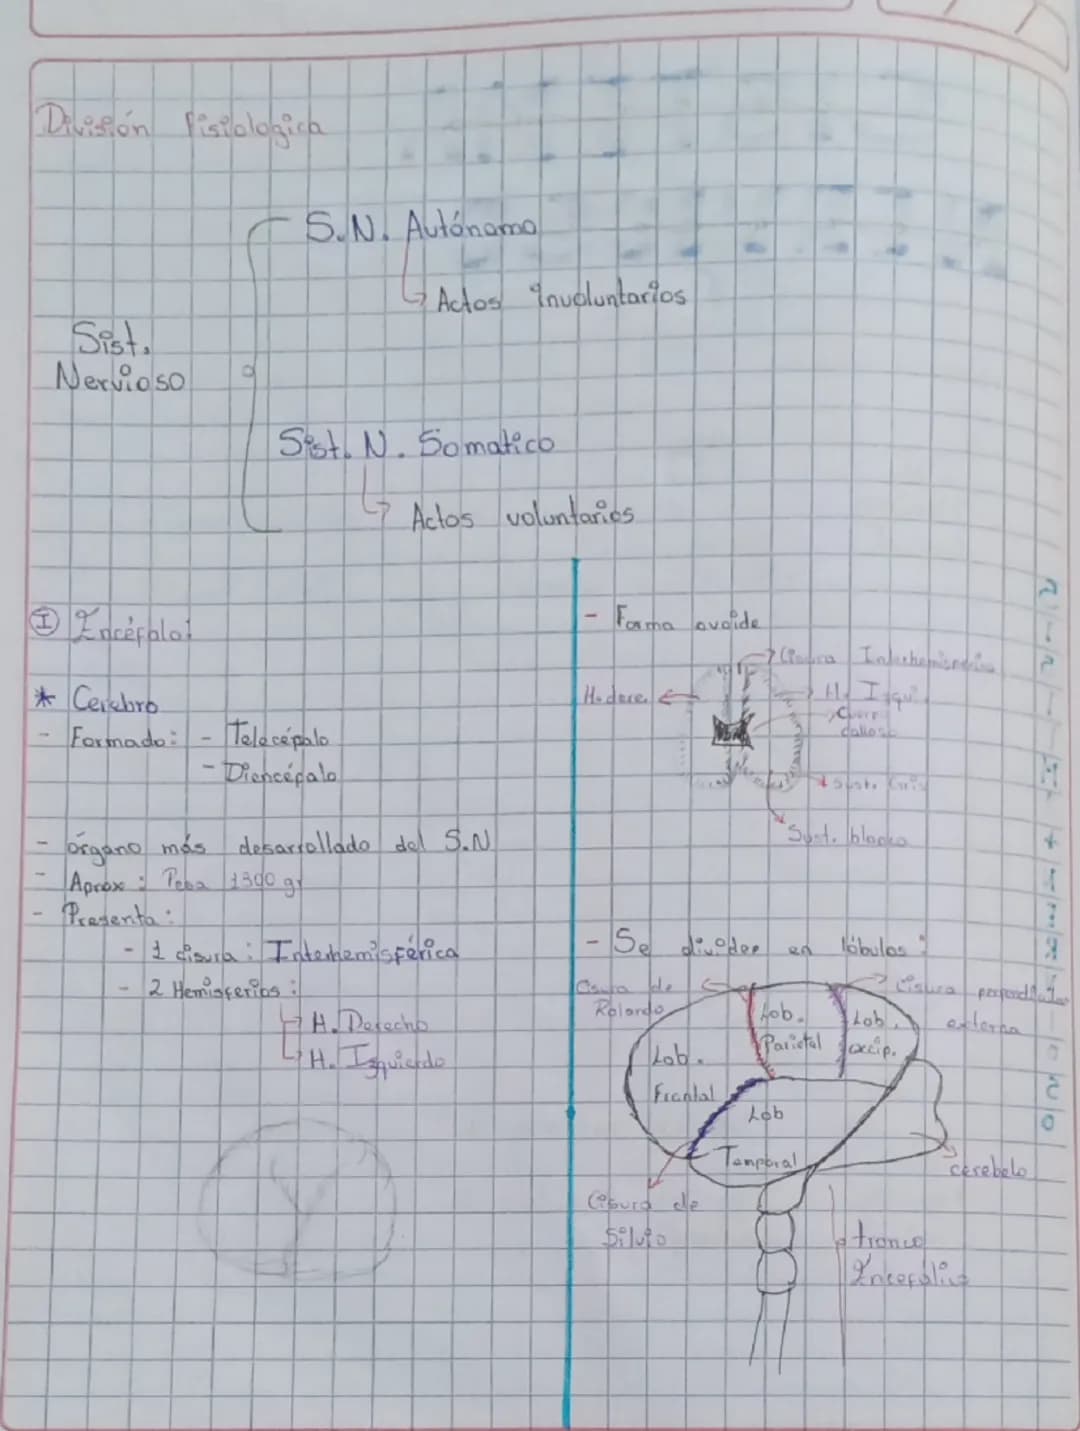 División fisiologica
S.N. Autónomo
Actos involuntarios
Sist.
Nervioso
Sist. N. Somatico
Actos voluntarios
I Encéfalo:
* Cerebro
- Formado: - Telecéfalo
- Diencéfalo
- órgano más desarrollado del S.N
- Aprox : Pesa 1300 gr
- Presenta :
- 1 cisura : Interhemisférica
- 2 Hemisferios :
H. Derecho
H. Izquierdo
- Forma ovoide
Cisura Interhemisférica
H. derec.
H. Izqui.
Cuerp.
calloso
Sust. Gris
Sust. blanca
- Se dividen en lóbulos :
Cisura de
Rolando
Cisura perpendicular
externa
Lob.
Parietal
Lob.
occip.
Lob.
Frontal
Lob
Temporal
cerebelo
Cisura de
Silvio
tronco
Encefálico